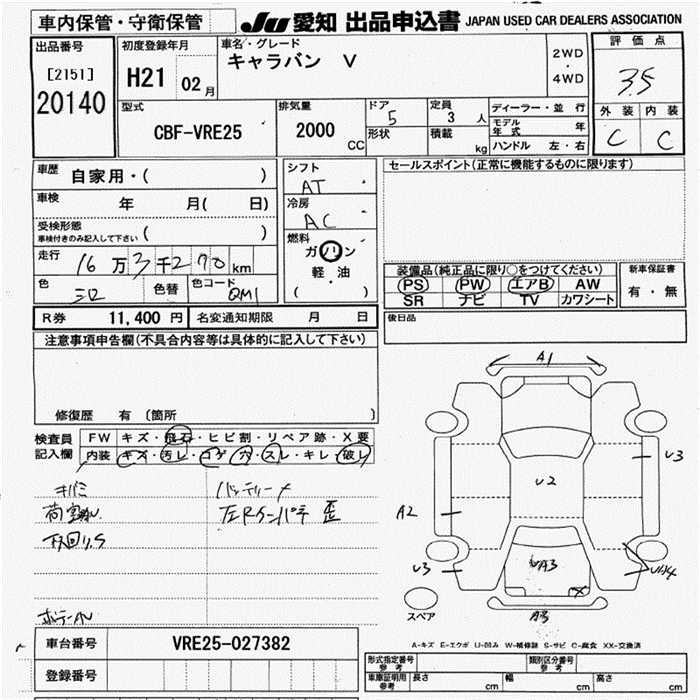 車内保管・守衛保管
JU 愛知 出品申込書 JAPAN USED CAR DEALERS ASSOCIATION
出品番号
[2151]
20140
初度登録年月
H21 02月
車名・グレード
キャラバン V
2WD
・
4WD
評価点
3.5
外装 内装
C C
型式
CBF-VRE25
排気量
2000 CC
ドア
5
形状
定員
3 人
積載
kg
ディーラー・並行
モデル年式 年
ハンドル 左・右
車歴
自家用・( )
車検
年 月( 日)
受検形態
車検付きのみ記入して下さい ( )
走行
16万3千270km
色
シロ
色替
色コード
QM1
シフト
AT
冷房
AC
燃料
ガソリン
軽・油
( )
セールスポイント(正常に機能するものに限ります)
装備品(純正品に限り○をつけてください)
PS PW エアB AW
SR ナビ TV カワシート
新車保証書
有・無
R券 11,400 円 名変通知期限 月 日
後日品
注意事項申告欄(不具合内容等は具体的に記入して下さい)
修復歴 有 〔箇所 〕
検査員
記入欄
FW キズ・飛石・ヒビ割・リペア跡・X要
内装 キズ・汚レ・コゲ・穴・スレ・キレ・破レ
キバミ
バッテリーナ
荷室
左Rクンパチ 歪
下回りS
A1
U3
U2
A2
U3
A3
スペア
A-キズ E-エクボ U-凹み W-補修跡 S-サビ C-腐食 XX-交換済
車台番号 VRE25-027382
登録番号
形式指定番号
参考
類別区分番号
参考
車庫証明用
参考
長さ cm 幅 cm 高さ cm